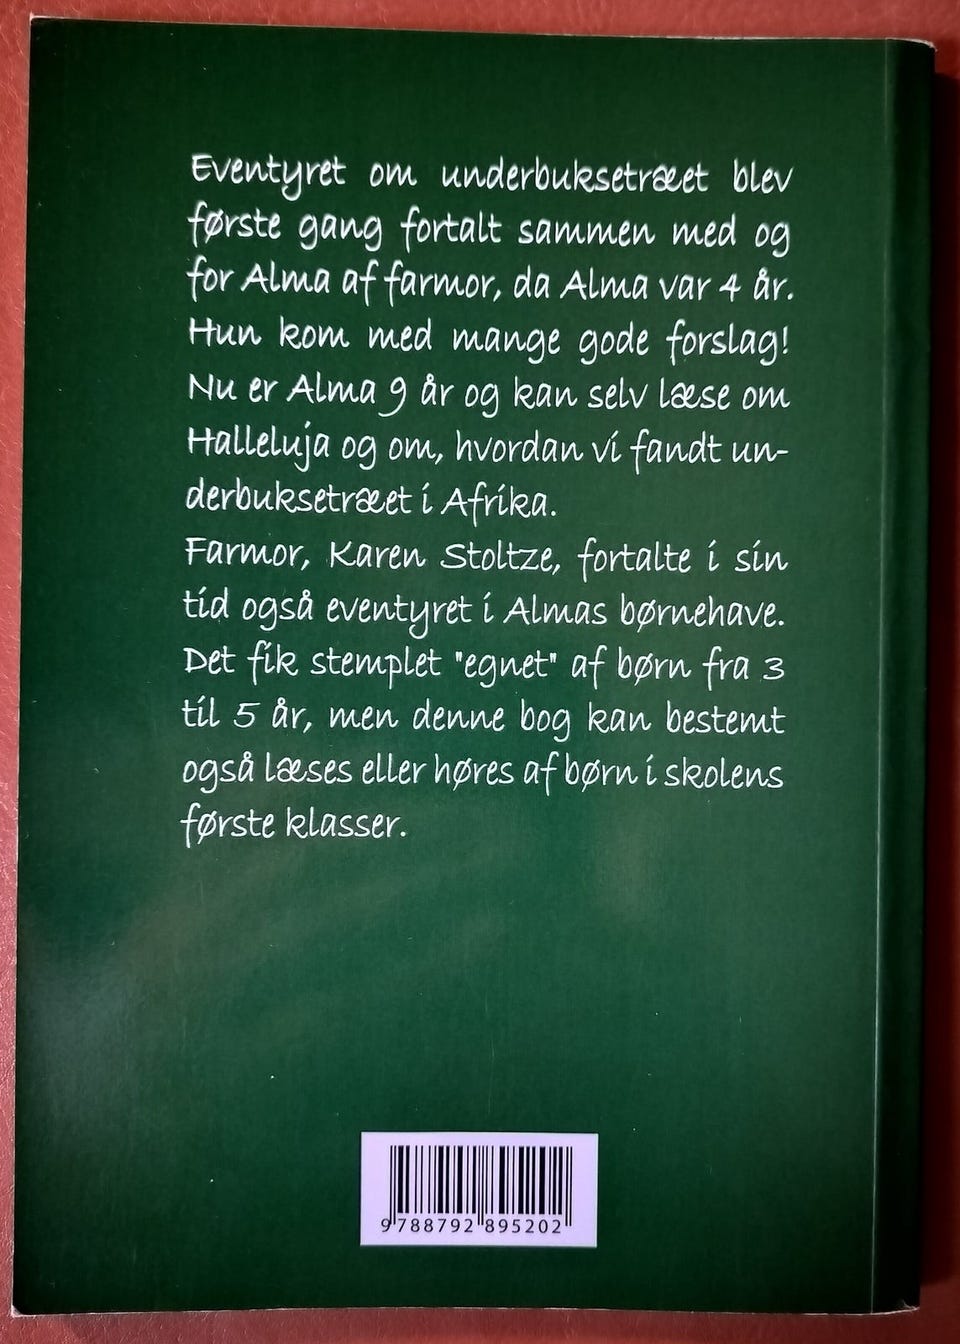 Eventyret om underbuksetræet blev
første gang fortalt sammen med og
for Alma af farmor, da Alma var 4 år.
Hun kom med mange gode forslag!
Nu er Alma 9 år og kan selv læse om
Halleluja og om, hvordan vi fandt un-
derbuksetræet i Afrika.
Farmor, Karen Stoltze, fortalte i sin
tid også eventyret i Almas børnehave.
Det fik stemplet "egnet" af børn fra 3
til 5 år, men denne bog kan bestemt
også læses eller høres af børn i skolens
første klasser.
9 788792 895202